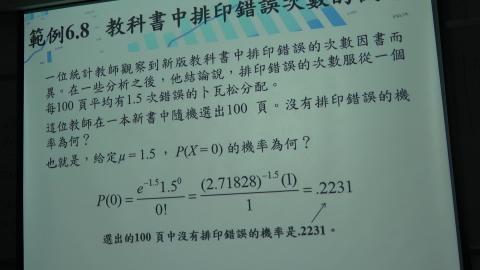 範例6.8 教科書中排印錯誤次數的
一位統計教師觀察到新版教科書中排印錯誤的次數因書而
異。在一些分析之後，他結論說，排印錯誤的次數服從一個
每100 頁平均有1.5 次錯誤的卜瓦松分配。
這位教師在一本新書中隨機選出100 頁。沒有排印錯誤的機
率為何？
也就是，給定μ = 1.5 ，P(X = 0) 的機率為何？
P(0) = e^{-1.5}1.5^0 / 0! = (2.71828)^{-1.5}(1) / 1 = .2231
選出的100 頁中沒有排印錯誤的機率是.2231。